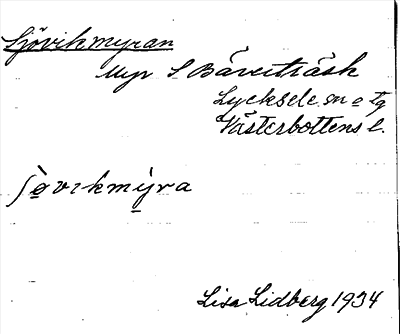 Sjövikmyran
Myr S Bäverträsk
Lycksele sn o tg
Västerbottens l.
ʃø̀vɪkmỳra
Lisa Lidberg 1934